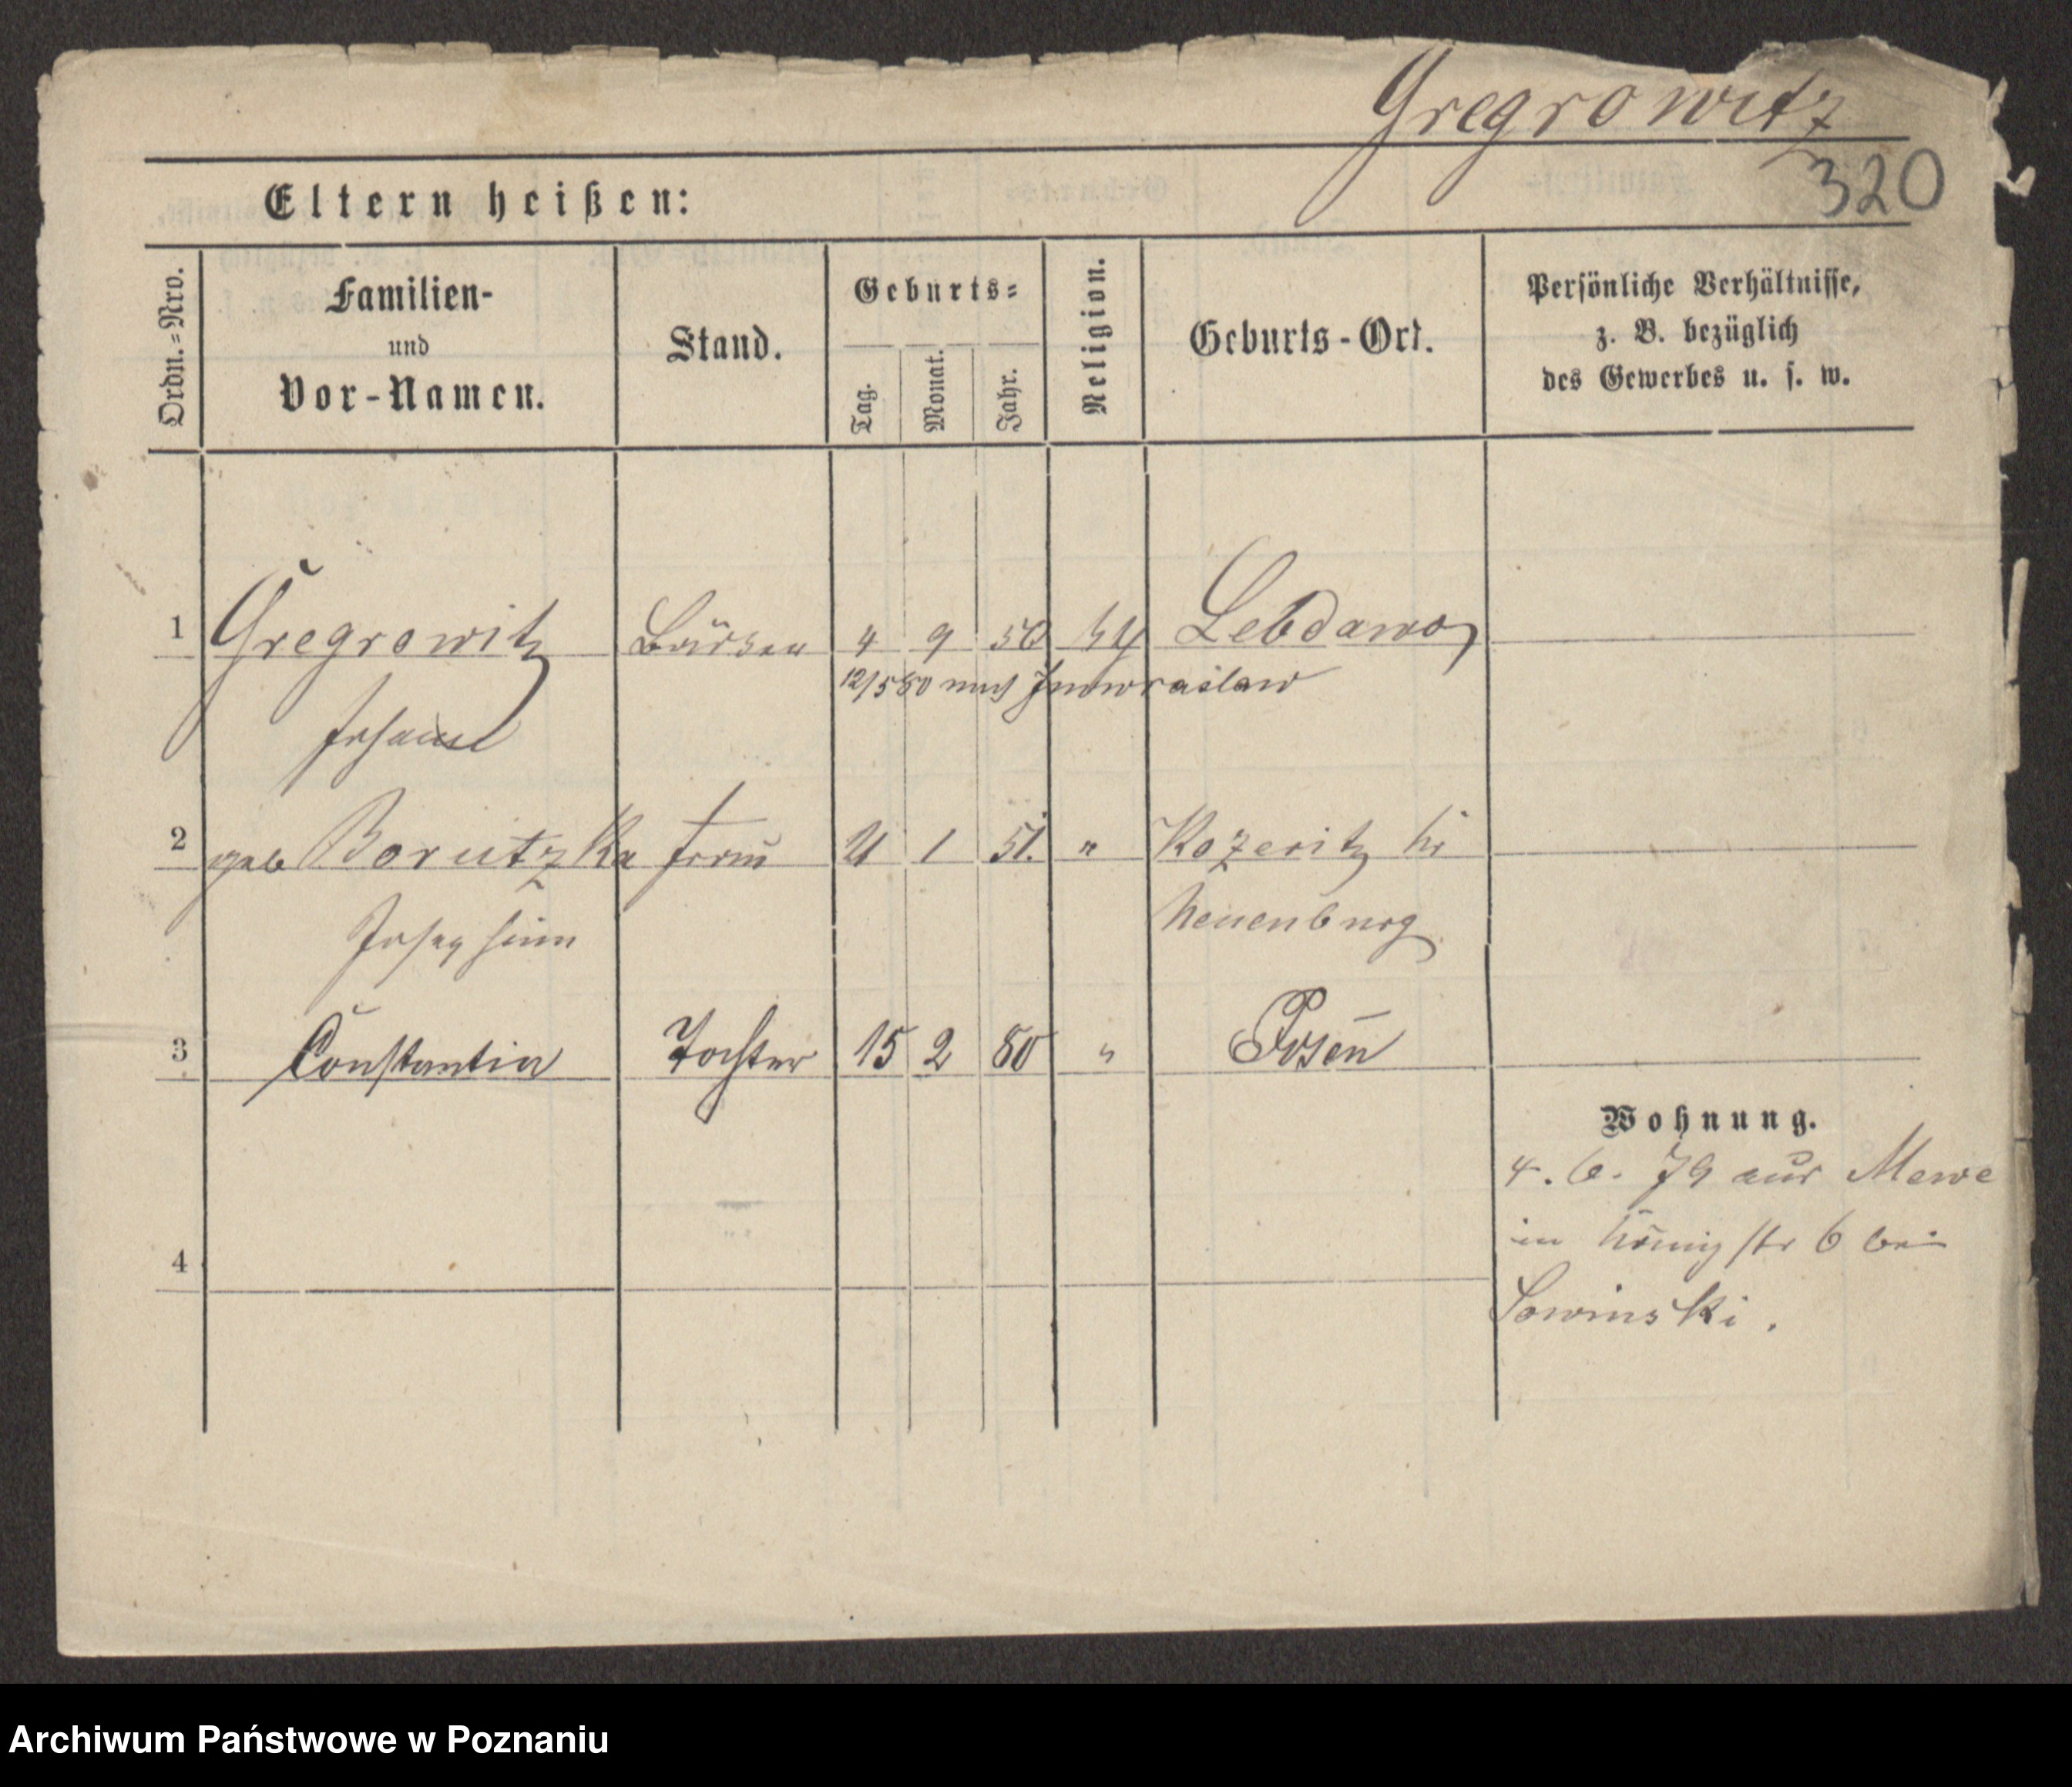 Gregrowitz
320
Eltern heißen:
Ordn.=Nro.
Familien-
und
Vor-Namen.
Stand.
Geburts=
Tag.
Monat.
Jahr.
Religion.
Geburts-Ort.
Persönliche Verhältnisse,
z. B. bezüglich
des Gewerbes u. s. w.
1 Gregrowitz 4 9 50
12/5 80 nach Inowraclaw
Johann
2 geb Borutzka Frau 21 1 51. " Kozeritz Kr
Neuenburg
Josephine
3 Constantia Tochter 15 2 80 " Posen
Wohnung.
4. 6. 79 aus Mewe
in Königstr 6 bei
Sowinski.
4
Archiwum Państwowe w Poznaniu